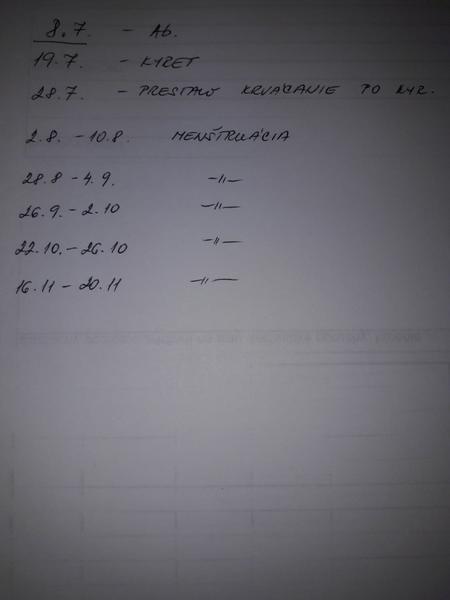 8.7. - Ab.
19.7. - KYRET
28.7. - PRESTALO KRVÁCANIE PO KYR.
2.8. - 10.8. MENŠTRUÁCIA
28.8 - 4.9. -//-
26.9. - 2.10 -//-
22.10. - 26.10 -//-
16.11 - 20.11 -//-